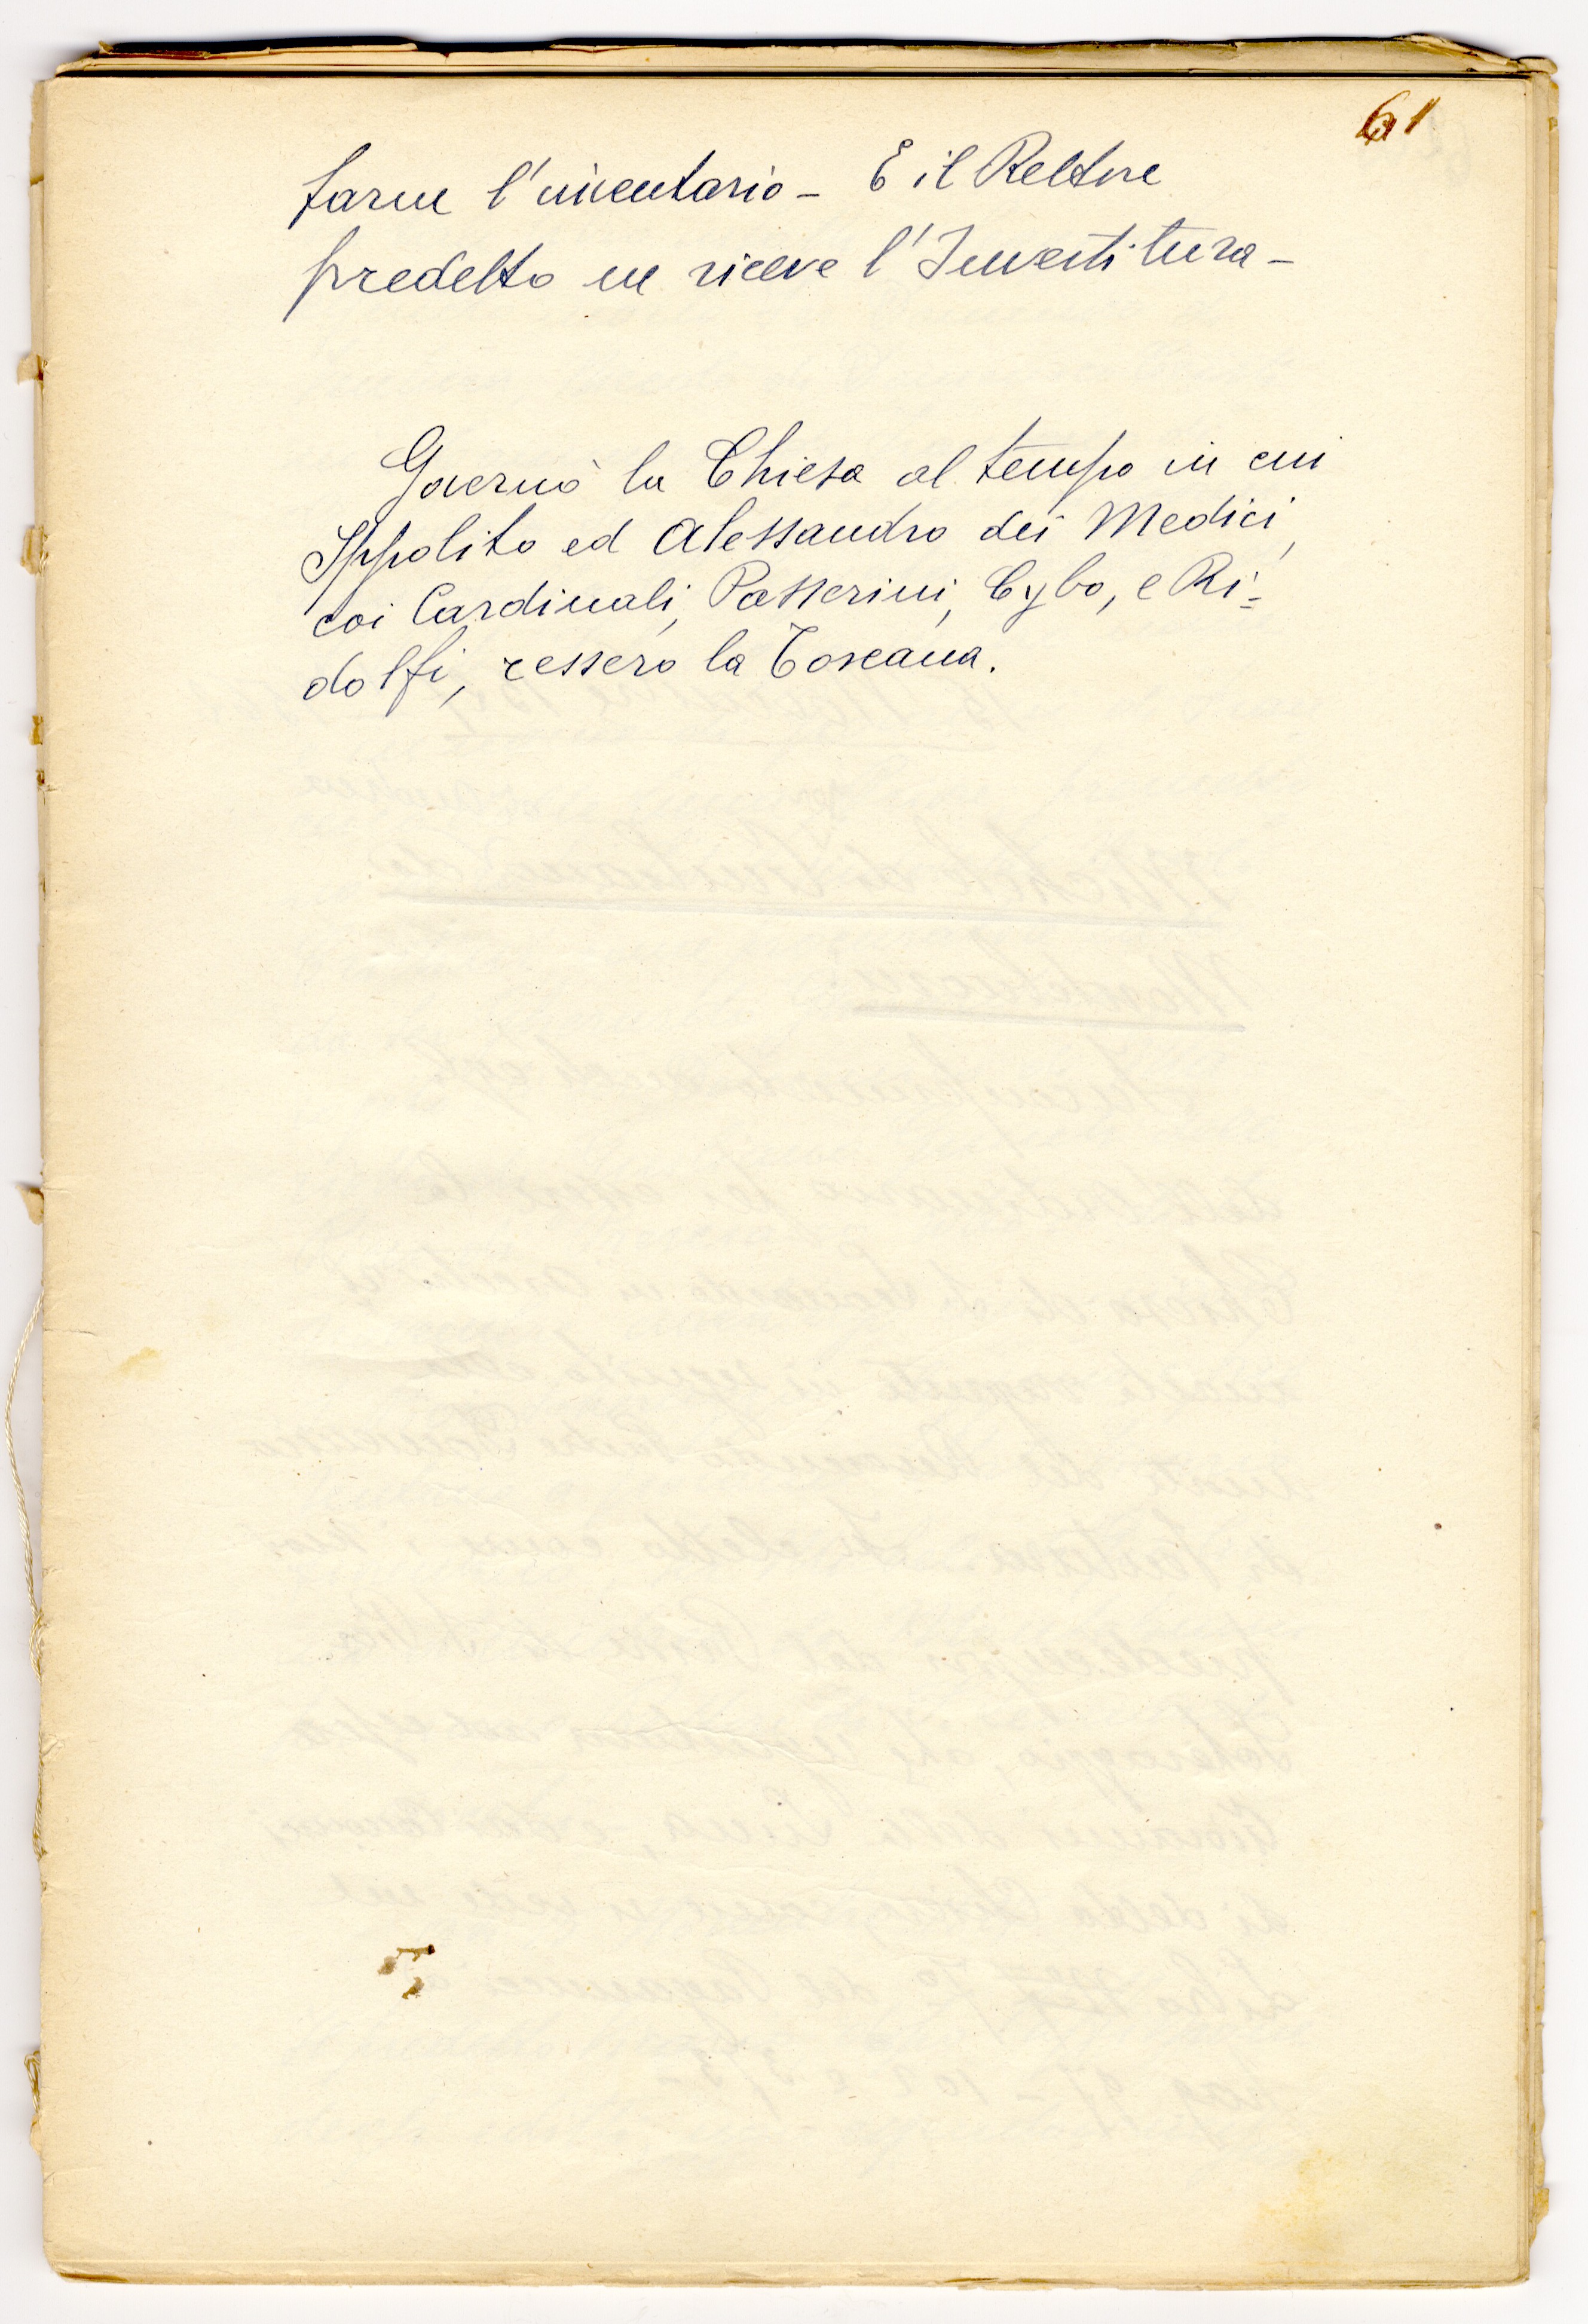 61
farne l'inventario - E il Rettore
predetto ne riceve l'Investitura -
Governò la Chiesa al tempo in cui
Ippolito ed Alessandro dei Medici,
coi Cardinali, Passerini, Cybo, e Ri=
dolfi, ressero la Toscana.